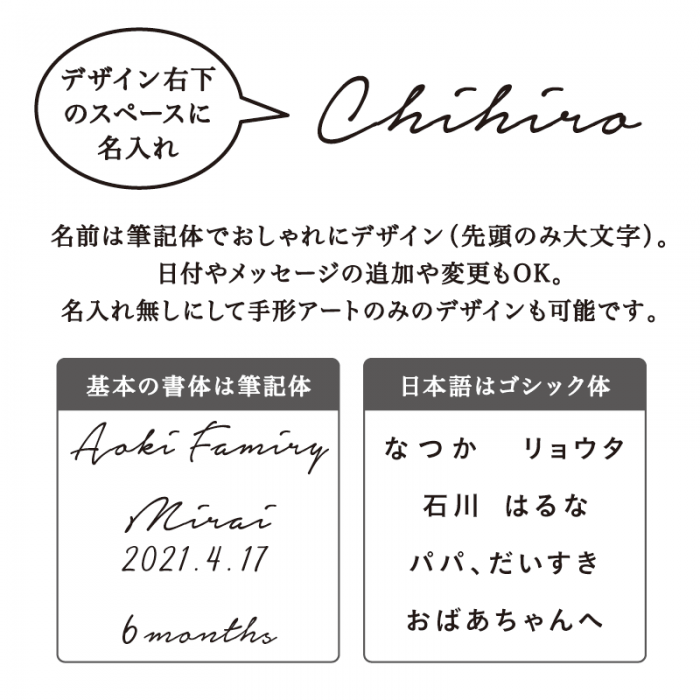 デザイン右下
のスペースに
名入れ
Chihiro
名前は筆記体でおしゃれにデザイン（先頭のみ大文字）。
日付やメッセージの追加や変更もOK。
名入れ無しにして手形アートのみのデザインも可能です。
基本の書体は筆記体
Aoki Famiry
Mirai
2021.4.17
6 months
日本語はゴシック体
なつか リョウタ
石川 はるな
パパ、だいすき
おばあちゃんへ